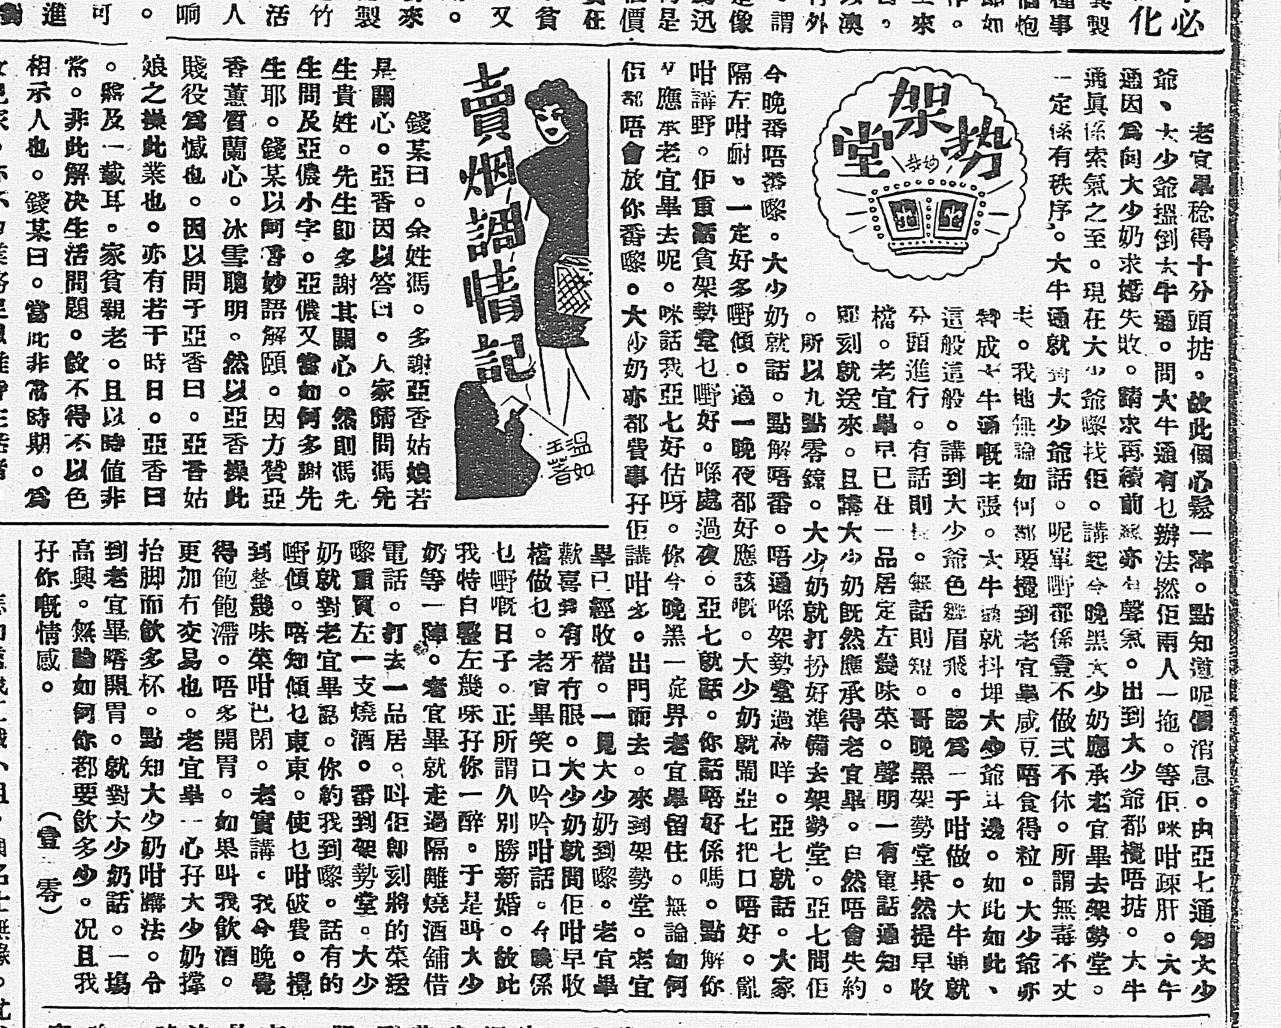 架勢堂
老宜畢稔得十分頭掂。故此個心鬆一陣。點知道呢個消息。由亞七通知大少
爺、大少爺搵倒大牛通。問大牛通有乜辦法撚佢兩人一拖。等佢咪咁疎肝。大牛
通因爲向大少奶求嬉失敗。請求再續前緣亦冇聲氣。出到大少爺都攪唔掂。大牛
通眞係索氣之至。現在大少爺嚟找佢。講起今晚黑大少奶應承老宜畢去架勢堂。
一定係有秩序。大牛通就對大少爺話。呢單嘢都係壹不做弍不休。所謂無毒不丈
夫。我地無論如何都要攪到老宜畢咸豆唔食得粒。大少爺亦
贊成大牛通嘅主張。大牛通就抖埋大少爺耳邊。如此如此、
這般這般。講到大少爺色舞眉飛。認爲一于咁做。大牛通就
分頭進行。有話則長。無話則短。哥晚黑架勢堂果然提早收
檔。老宜畢早已在一品居定左幾味菜。聲明一有電話通知。
即刻就送來。且講大少奶旣然應承得老宜畢。自然唔會失約
。所以九點零鐘。大少奶就打扮好準備去架勢堂。亞七問佢
今晚番唔番嚟。大少奶就話。點解唔番。唔通喺架勢堂過夜咩。亞七就話。大家
隔左咁耐、一定好多嘢傾。過一晚夜都好應該嘅。大少奶就鬧亞七把口唔好。亂
咁講野。佢重話貪架勢堂乜嘢好。喺處過夜。亞七就話。你話唔好係嗎。點解你
又應承老宜畢去呢。咪話我亞七好估呀。你今晚黑一定畀老宜畢留住。無論如何
佢都唔會放你番嚟。大少奶亦都費事孖佢講咁多。出門而去。來到架勢堂。老宜
畢已經收檔。一見大少奶到嚟。老宜畢
歡喜到有牙冇眼。大少奶就問佢咁早收
檔做乜。老宜畢笑口吟吟咁話。今晚係
乜嘢嘅日子。正所謂久別勝新婚。故此
我特自整左幾味孖你一醉。于是叫大少
奶等一陣。老宜畢就走過隔離燒酒舖借
電話。打去一品居。叫佢即刻將的菜送
嚟重買左一支燒酒。番到架勢堂。大少
奶就對老宜畢話。你約我到嚟。話有的
嘢傾。唔知傾乜東東。使乜咁破費。攪
到整幾味菜咁巴閉。老實講。我今晚覺
得飽飽滯。唔多開胃。如果叫我飲酒。
更加冇交易也。老宜畢一心孖大少奶撑
抬脚而飲多杯。點知大少奶咁辦法。令
到老宜畢唔開胃。就對大少奶話。一塲
高興。無論如何你都要飲多少。况且我
孖你嘅情感。
（壹　零）
賣烟調情記
溫如玉著
錢某曰。余姓馮。多謝亞香姑娘若
是關心。亞香因以答曰。人家歸問馮先
生貴姓。先生即多謝其關心。然則馮先
生問及亞儂小字。亞儂又當如何多謝先
生耶。錢某以阿香妙語解頤。因力贊亞
香蕙質蘭心。冰雪聰明。然以亞香操此
賤役爲憾也。因以問于亞香曰。亞香姑
娘之操此業也。亦有若干時日。亞香曰
。將及一載耳。家貧親老。且以時值非
常。非此解決生活問題。故不得不以色
相示人也。錢某曰。當此非常時期。爲